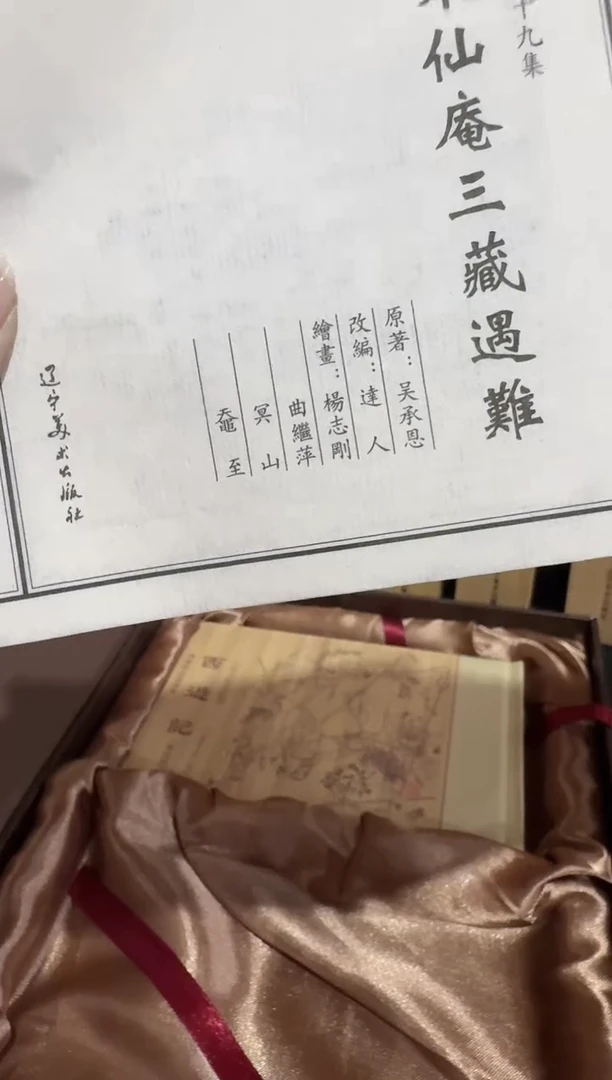 九集
仙庵三藏遇難
原著：吴承恩
改編：達人
繪畫：楊志剛
曲繼萍
冥山
至
辽宁美术出版社
西遊記